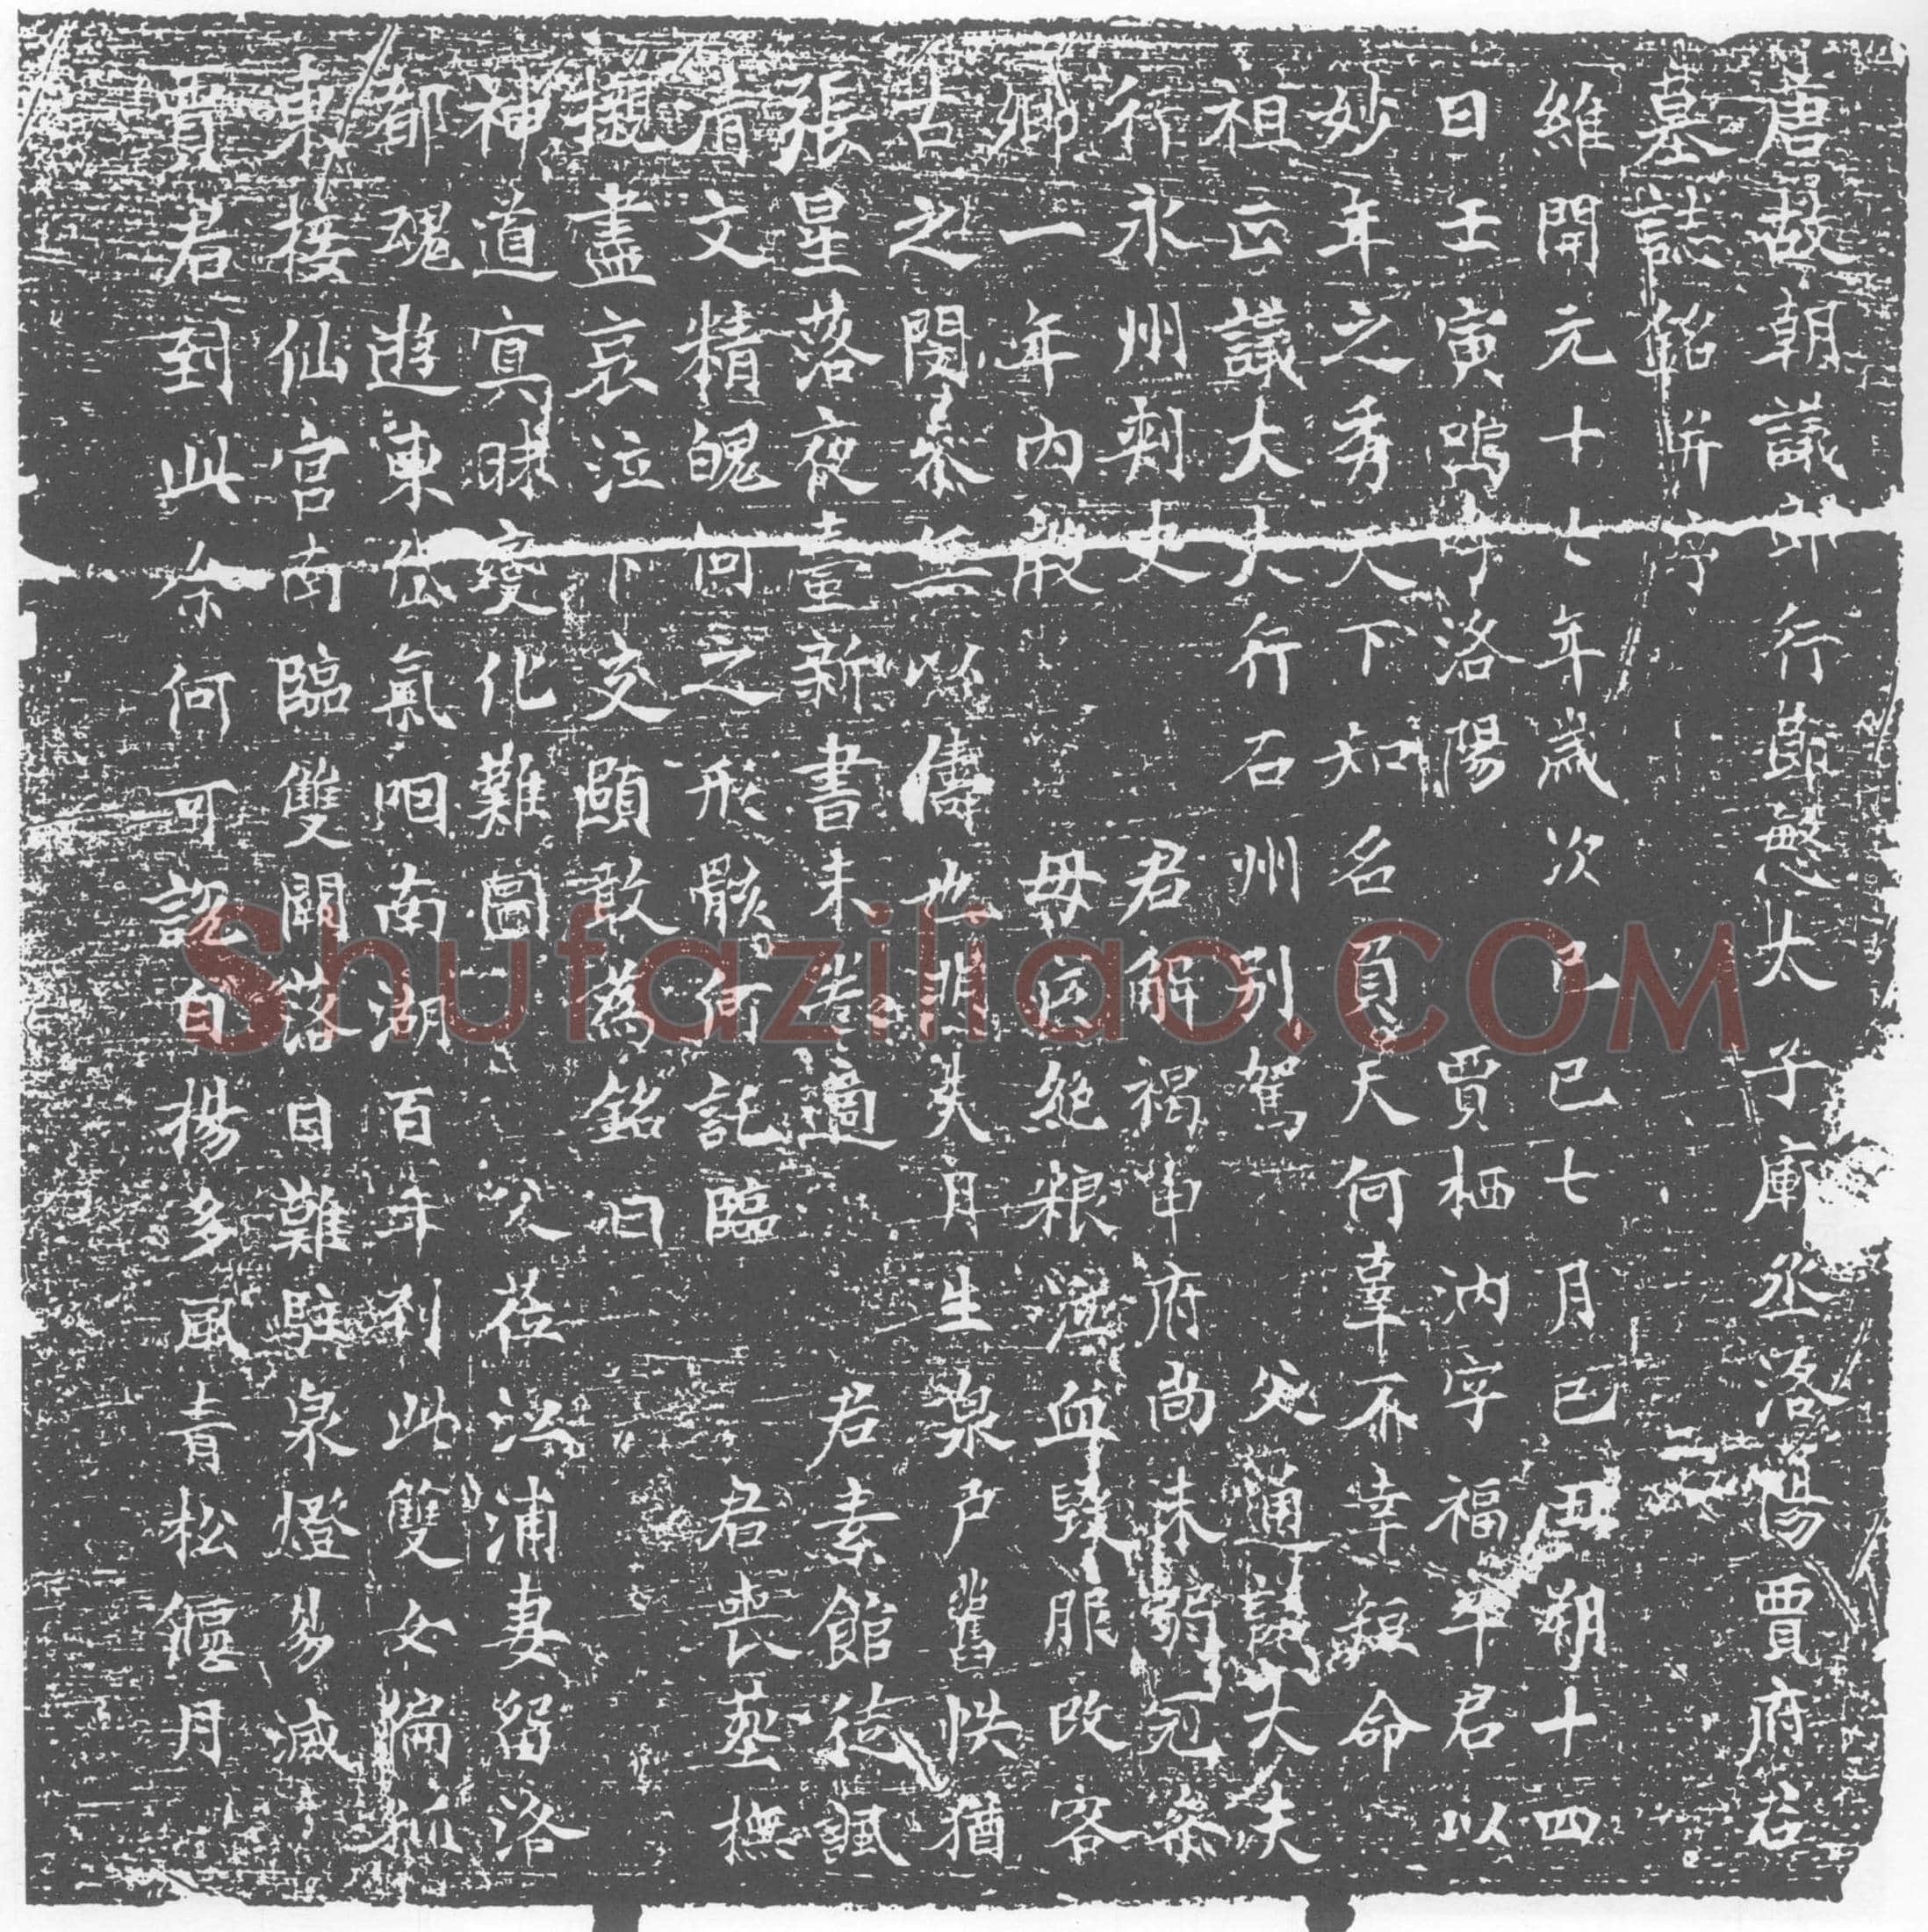 唐故朝議郎行節愍太子庫丞洛陽賈府君
墓誌銘并序
維開元十七年歲次己巳七月己丑朔十四
日壬寅嗚呼洛陽賈栖汭字福卒君以
妙年之秀天下知名負天何辜不幸短命
祖正議大夫行石州別駕父通議大夫
行永州刺史君解褐申府尚未弱冠參
卿一年內艱母亡絶粮泣血毀服改容
古之閔參無以儔也明失月生泉戶舊帙猶
張星落夜臺新書未卷適君素館徒諷
青文精魄何之形骸何託臨君喪墓撫
櫬盡哀泣下交頤敢為銘曰
神道寘昧變化難圖父莅江浦妻留洛
都魂遊東岱氣咽南湖百年到此雙女偏孤
東接仙宮南臨雙闕落日難駐泉燈易滅
賈君到此余何可說白楊多風青松偃月
Shufaziliao.COM